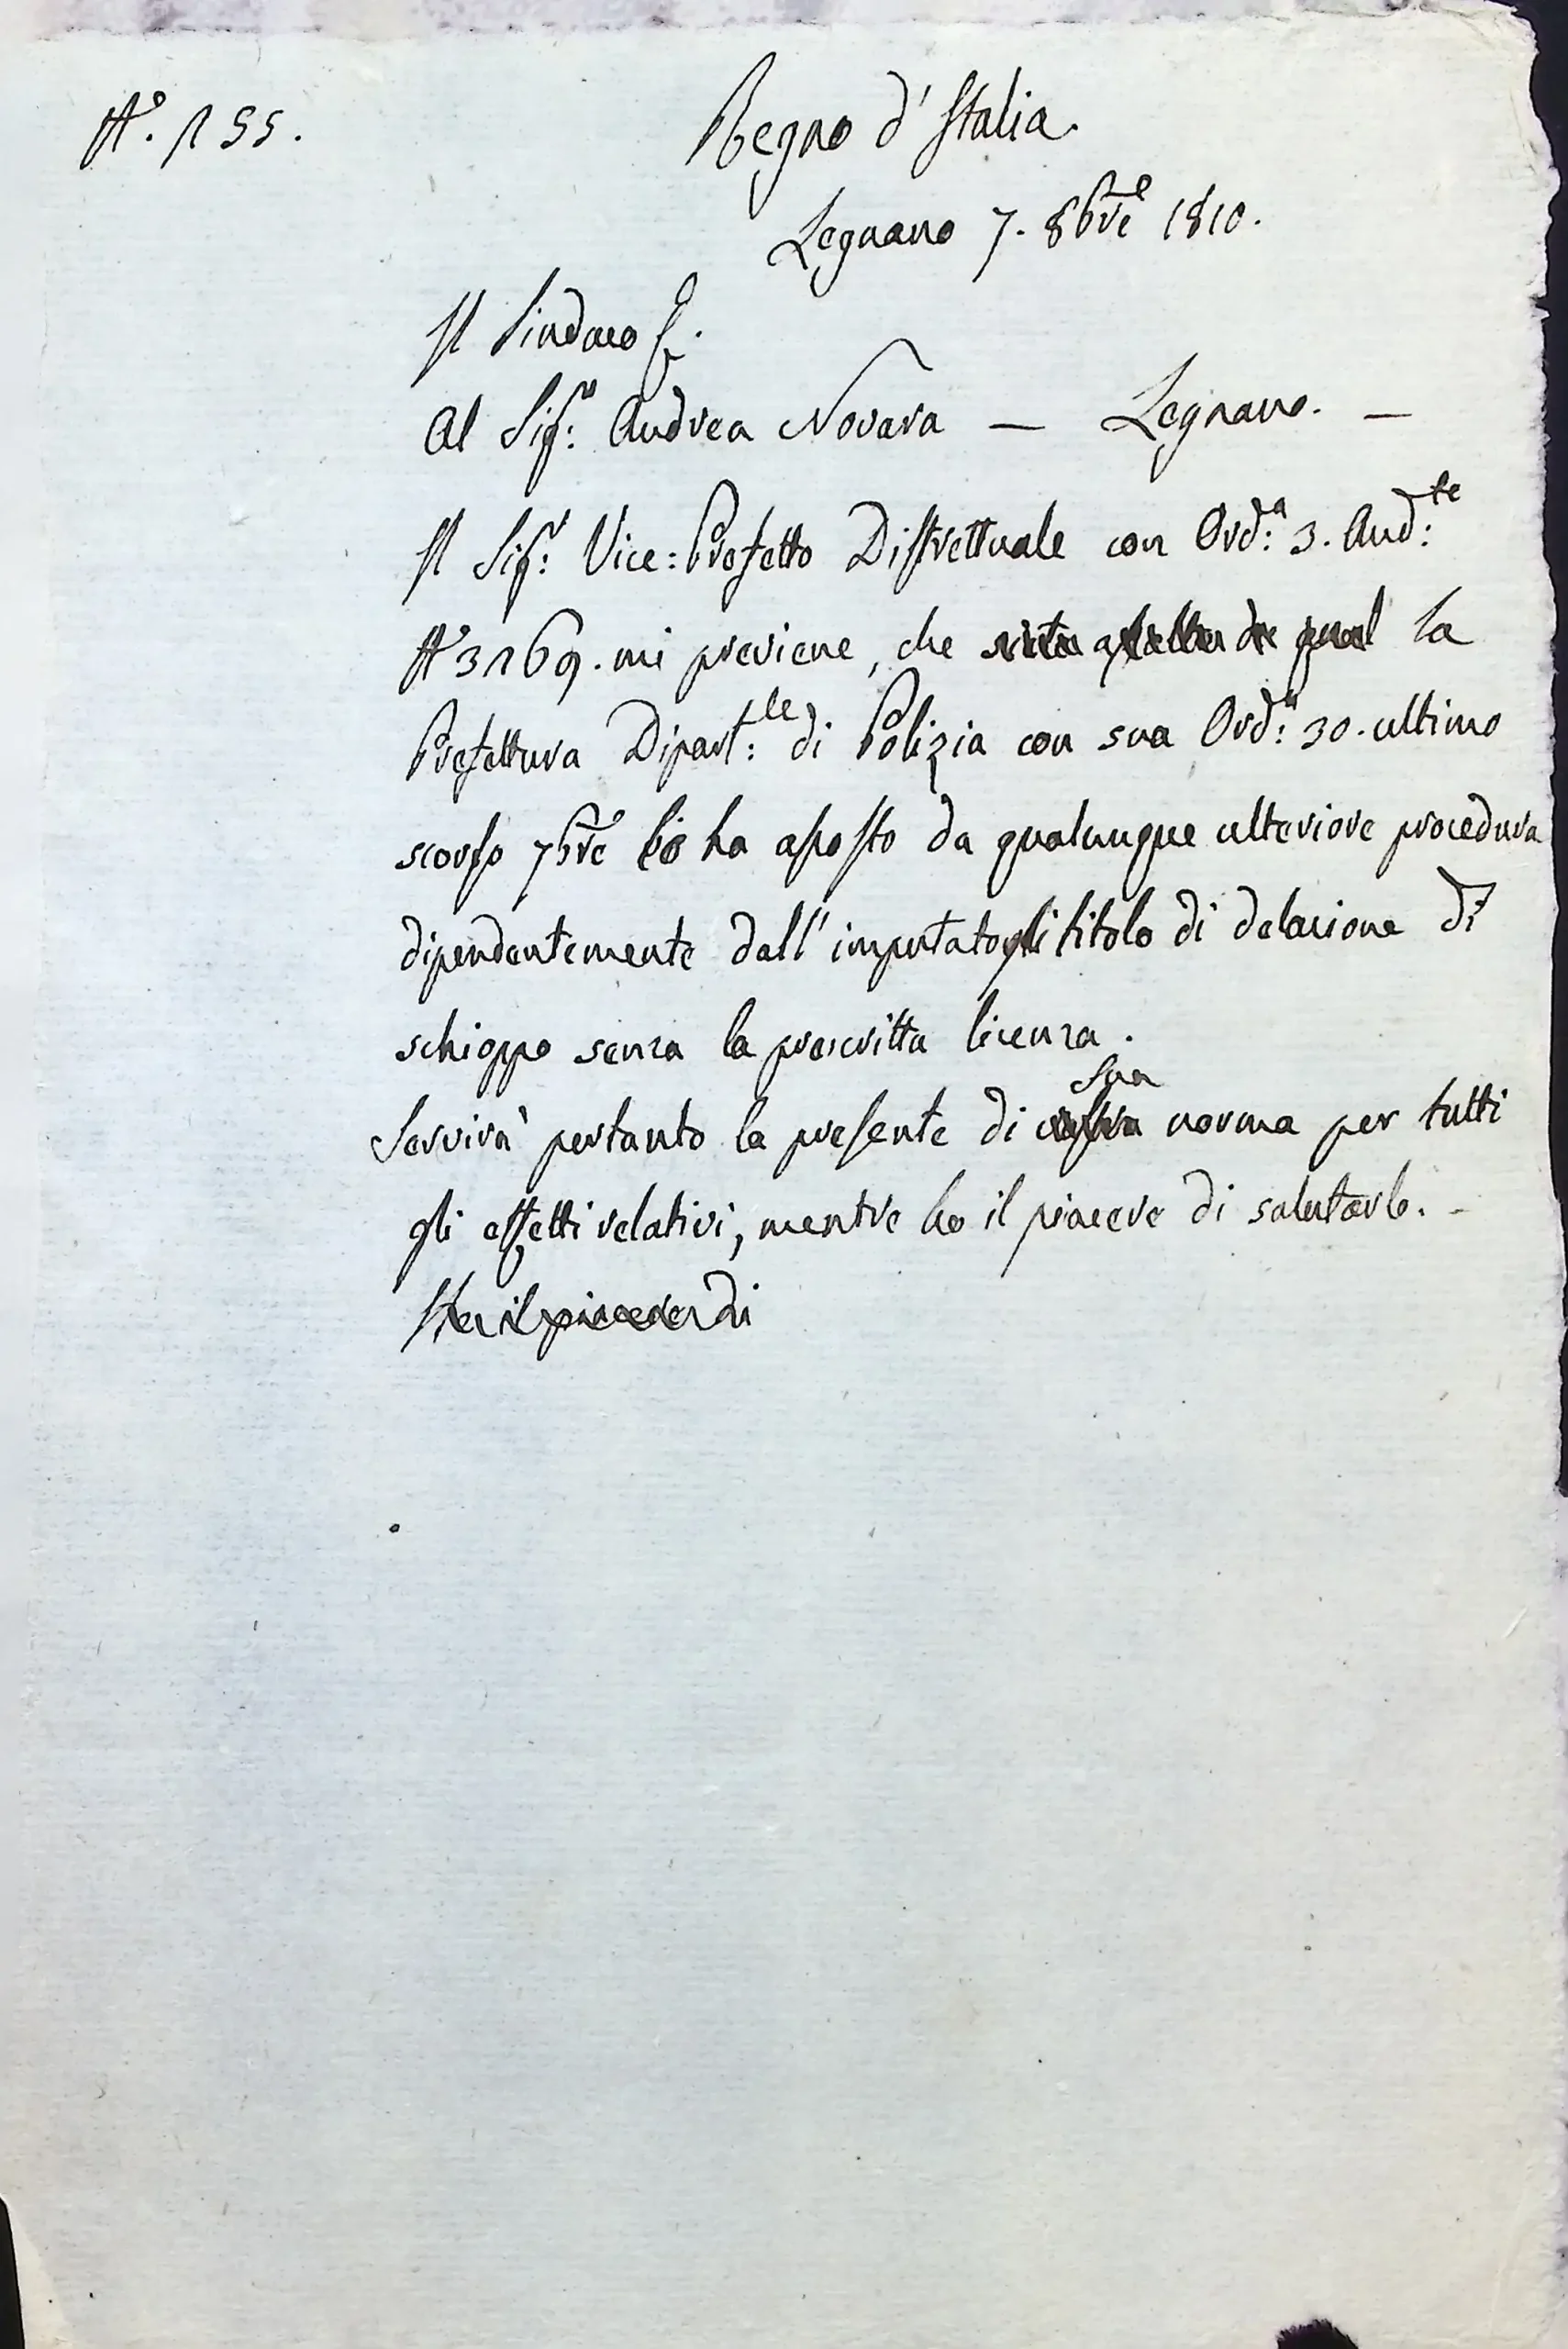 N.° 155.
Regno d'Italia.
Legnano 7. 8bre 1810.
Il Sindaco
Al Sig.r Andrea Novara — Legnano. —
Il Sig.r Vice: Prefetto Distrettuale con Ord.a 3. And.te
N.° 3169. mi previene, che la
Prefettura Dipart.le di Polizia con sua Ord.a 30. ultimo
scorso 7bre lo ha assosto da qualunque ulteriore procedura
dipendentemente dall'imputatogli titolo di delazione di
schioppo senza la prescritta licenza.
Sua
Servirà pertanto la presente di norma per tutti
gli effetti relativi, mentre ho il piacere di salutarlo. -
il piacere di